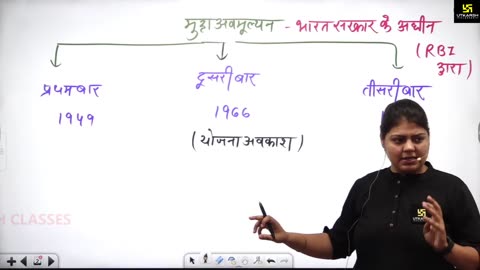 मुद्रा अवमूल्यन - भारत सरकार के अधीन
(RBI द्वारा)
प्रथम बार
दूसरी बार
तीसरी बार
1949
1966
(योजना अवकाश)
H CLASSES
UTKARSH